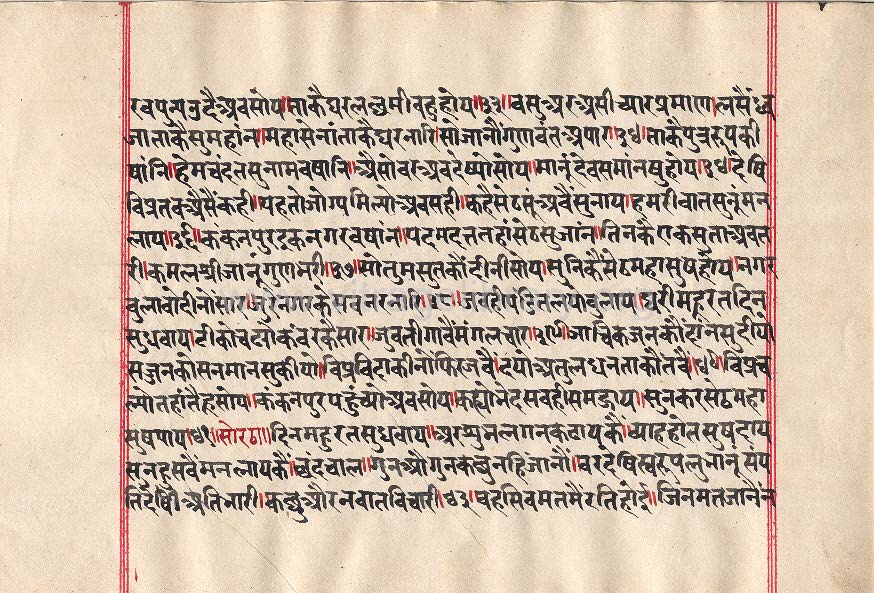 रवपुन्यनुदैअवसोय।ताकैघरलछमीबहुहोय॥३३॥वसुअरअसीच्यारप्रमाण।लसैंध्व
जाताकैसुमहांन।महासेनांताकैघरनारि।सोजानौंगुणवंतअपार।३४।ताकैपुत्ररूपकी
षांनि।हेमचंदतसुनामवषांनि।अैसोवरअवदेष्योसोय।मानूंदेवसमानषुहोय।३५।देषि
विप्रतवअैसैंकही।यहतोजोग्यमिल्योअवसही।कहैसेठसूंअवैंसुनाय।हमरीवातसुनूंमन
लाय।३६।कंकनपुरइकनगरवषांन।पदमदत्ततहांसेठसुजांन।तिनकैएकसुताअवत
री।कमलश्रीजानूंगुणभरी।३७।सोतुमसुतकौंदीनीसोय।सुनिकैंसेठमहासुषहोय।नगर
बुलावादीनोसार।जुरेनगरकेसवनरनारि।३८।जरहीपंडितलयोबुलाय।घरीमहूरतदिन
सुधवाय।टीकोचढ्योकंवरकैसार।जुवतीगावैमंगलचार।३९।जाचिकजनकौंदांनसुदीयो
सज्जनकोसनमानसुकीयो।विप्रविदाकीनोंफिरजवै।दयोअतुलधनताकौतवै।४०।विप्रच
ल्योतहांतैहसोय।कंकनपुरपहुंच्योअवसोय।कह्योभेदसवहीसमझाय।सुनकरसेठमहा
सुषपाय।४१॥सोरठा॥दिनमहूरतसुधवाय।अरशुनलगनकढायकैं।व्याहहोतसुषदाय
सनहुसवैमनल्यायकैं।छंदचाल।गुनऔगुनकछुनहिजानौं।वरदेषिस्वरूपलुभानूं।संप
तिदेषीअतिभारी।कछुऔरनवातविचारी।४३।वहसिवमतमैंरतिहोई।जिनमतजानैंन